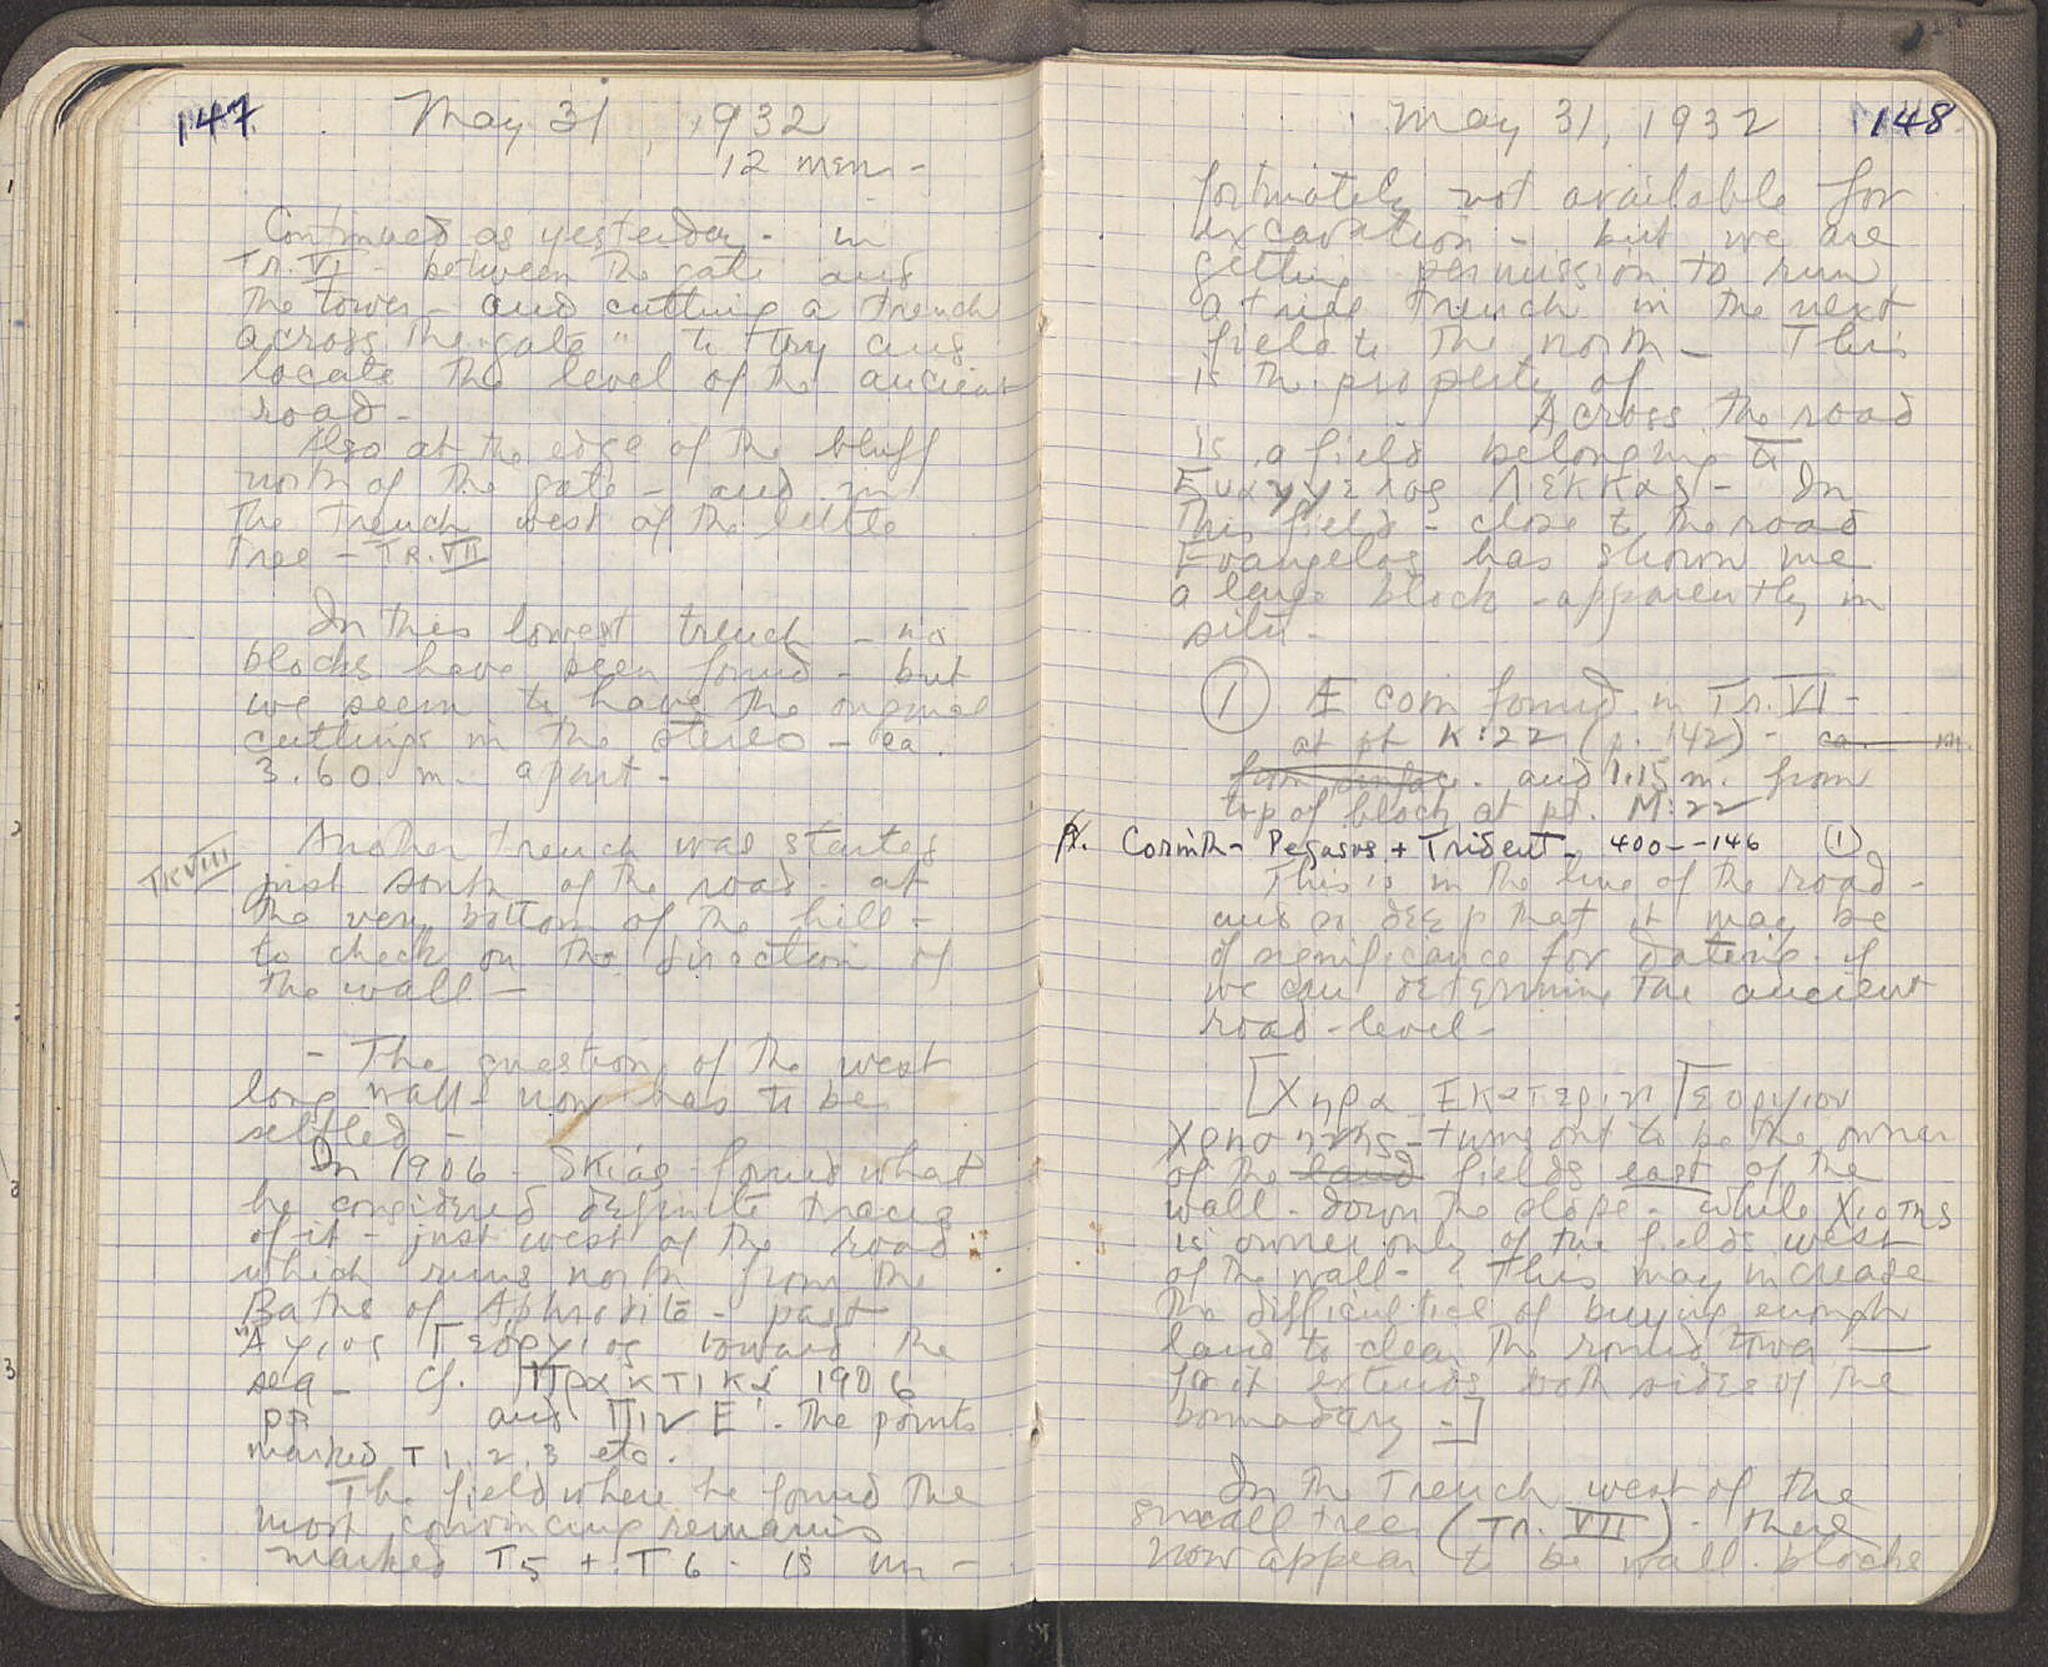 147 May 31, 1932
12 men -
Continued as yesterday - in
Tr. VI - between the gate and
the tower - and cutting a trench
across the "gate" to try and
locate the level of the ancient
road -
Also at the edge of the bluff
north of the gate - and in
the trench west of the little
tree - TR. VII
In this lowest trench - no
blocks have been found - but
we seem to have the original
cuttings in the stereo - ca.
3.60 m. apart -
Another trench was started
TR VIII
just south of the road - at
the very bottom of the hill -
to check on the direction of
the wall -
- The question of the west
long wall - now has to be
settled -
In 1906 - Skias found what
he considered definite traces
of it - just west of the road
which runs north from the
Baths of Aphrodite - past
Ἅγιος Γεόργιος toward the
sea - cf. Πρακτικά 1906
pp and Πιν Ε'. The points
marked T 1, 2, 3 etc.
The field where he found the
most convincing remains
marked T5 + T6 - is un-
May 31, 1932 148
fortunately not available for
excavation - but we are
getting permission to run
a trial trench in the next
field to the north - This
is the property of
Across the road
is a field belonging to
Ευαγγελος Λέκκας - In
this field - close to the road
Evangelos has shown me
a large block - apparently in
situ -
① Æ coin found in Tr. VI -
at pt K:22 (p. 142) - ca. m.
from surface. and 1.15 m. from
top of block at pt. M:22
Corinth - Pegasus + Trident - 400--146 (1)
This is in the line of the road -
and so deep that it may be
of significance for dating - if
we can determine the ancient
road-level -
[Χηρα Εκατερινη Γεοργιου
turns out to be the owner
of the land fields east of the
wall - down the slope - while Χιοτης
is owner only of the fields west
of the wall - This may increase
the difficulties of buying enough
land to clear the round tower
for it extends both sides of the
boundary -]
In the trench west of the
small tree (Tr. VII) - there
now appear to be wall blocks